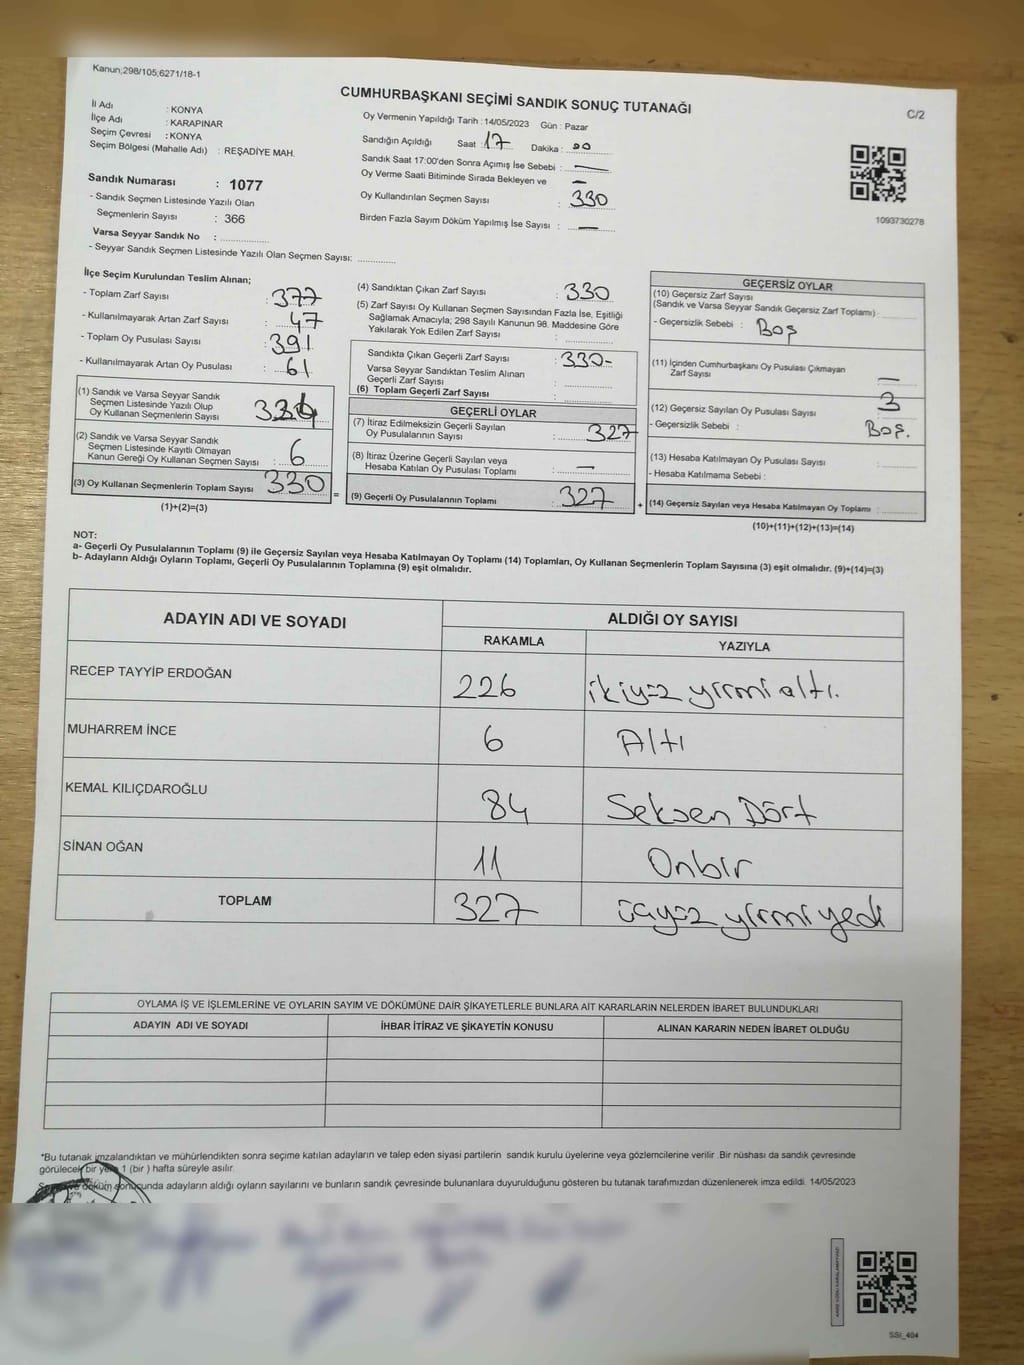 Kanun;298/105;6271/18-1
CUMHURBAŞKANI SEÇİMİ SANDIK SONUÇ TUTANAĞI
C/2
İl Adı : KONYA
İlçe Adı : KARAPINAR
Seçim Çevresi : KONYA
Seçim Bölgesi (Mahalle Adı) : REŞADİYE MAH.
Oy Vermenin Yapıldığı Tarih : 14/05/2023 Gün : Pazar
Sandığın Açıldığı Saat : 17 Dakika : 00
Sandık Saat 17:00'den Sonra Açımış İse Sebebi : —
Oy Verme Saati Bitiminde Sırada Bekleyen ve —
Oy Kullandırılan Seçmen Sayısı : 330
Birden Fazla Sayım Döküm Yapılmış İse Sayısı : —
1093730278
Sandık Numarası : 1077
- Sandık Seçmen Listesinde Yazılı Olan
Seçmenlerin Sayısı : 366
Varsa Seyyar Sandık No :
- Seyyar Sandık Seçmen Listesinde Yazılı Olan Seçmen Sayısı:
İlçe Seçim Kurulundan Teslim Alınan;
- Toplam Zarf Sayısı : 377
- Kullanılmayarak Artan Zarf Sayısı : 47
- Toplam Oy Pusulası Sayısı : 391
- Kullanılmayarak Artan Oy Pusulası : 61
(1) Sandık ve Varsa Seyyar Sandık
Seçmen Listesinde Yazılı Olup
Oy Kullanan Seçmenlerin Sayısı : 324
(2) Sandık ve Varsa Seyyar Sandık
Seçmen Listesinde Kayıtlı Olmayan
Kanun Gereği Oy Kullanan Seçmen Sayısı : 6
(3) Oy Kullanan Seçmenlerin Toplam Sayısı : 330
(1)+(2)=(3)
(4) Sandıktan Çıkan Zarf Sayısı : 330
(5) Zarf Sayısı Oy Kullanan Seçmen Sayısından Fazla İse, Eşitliği
Sağlamak Amacıyla; 298 Sayılı Kanunun 98. Maddesine Göre
Yakılarak Yok Edilen Zarf Sayısı :
Sandıkta Çıkan Geçerli Zarf Sayısı : 330-
Varsa Seyyar Sandıktan Teslim Alınan
Geçerli Zarf Sayısı :
(6) Toplam Geçerli Zarf Sayısı :
GEÇERLİ OYLAR
(7) İtiraz Edilmeksizin Geçerli Sayılan
Oy Pusulalarının Sayısı : 327
(8) İtiraz Üzerine Geçerli Sayılan veya
Hesaba Katılan Oy Pusulası Toplamı : —
(9) Geçerli Oy Pusulalarının Toplamı : 327
GEÇERSİZ OYLAR
(10) Geçersiz Zarf Sayısı
(Sandık ve Varsa Seyyar Sandık Geçersiz Zarf Toplamı) :
- Geçersizlik Sebebi : Boş
(11) İçinden Cumhurbaşkanı Oy Pusulası Çıkmayan
Zarf Sayısı : —
(12) Geçersiz Sayılan Oy Pusulası Sayısı : 3
- Geçersizlik Sebebi : Boş.
(13) Hesaba Katılmayan Oy Pusulası Sayısı :
- Hesaba Katılmama Sebebi :
(14) Geçersiz Sayılan veya Hesaba Katılmayan Oy Toplamı :
(10)+(11)+(12)+(13)=(14)
NOT:
a- Geçerli Oy Pusulalarının Toplamı (9) ile Geçersiz Sayılan veya Hesaba Katılmayan Oy Toplamı (14) Toplamları, Oy Kullanan Seçmenlerin Toplam Sayısına (3) eşit olmalıdır. (9)+(14)=(3)
b- Adayların Aldığı Oyların Toplamı, Geçerli Oy Pusulalarının Toplamına (9) eşit olmalıdır.
ADAYIN ADI VE SOYADI
ALDIĞI OY SAYISI
RAKAMLA YAZIYLA
RECEP TAYYİP ERDOĞAN 226 ikiyüz yirmi altı.
MUHARREM İNCE 6 Altı
KEMAL KILIÇDAROĞLU 84 Seksen Dört
SİNAN OĞAN 11 Onbir
TOPLAM 327 üçyüz yirmi yedi
OYLAMA İŞ VE İŞLEMLERİNE VE OYLARIN SAYIM VE DÖKÜMÜNE DAİR ŞİKAYETLERLE BUNLARA AİT KARARLARIN NELERDEN İBARET BULUNDUKLARI
ADAYIN ADI VE SOYADI İHBAR İTİRAZ VE ŞİKAYETİN KONUSU ALINAN KARARIN NEDEN İBARET OLDUĞU
*Bu tutanak imzalandıktan ve mühürlendikten sonra seçime katılan adayların ve talep eden siyasi partilerin sandık kurulu üyelerine veya gözlemcilerine verilir. Bir nüshası da sandık çevresinde
görülecek bir yere 1 (bir ) hafta süreyle asılır.
döküm sonucunda adayların aldığı oyların sayılarını ve bunların sandık çevresinde bulunanlara duyurulduğunu gösteren bu tutanak tarafımızdan düzenlenerek imza edildi. 14/05/2023
SSI_404